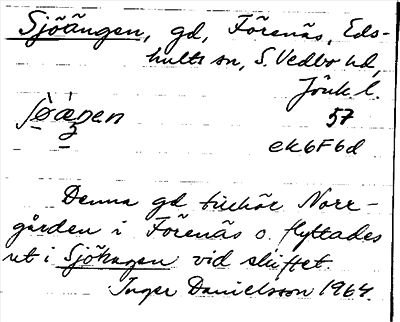 Sjöängen, gd, Förenäs, Eds-
hults sn, S. Vedbo hd,
Jönk l.
57
ek6F6d
Denna gd tillhör Norr-
gården i Förenäs o. flyttades
ut i Sjöhagen vid skiftet.
Inger Danielsson 1964.